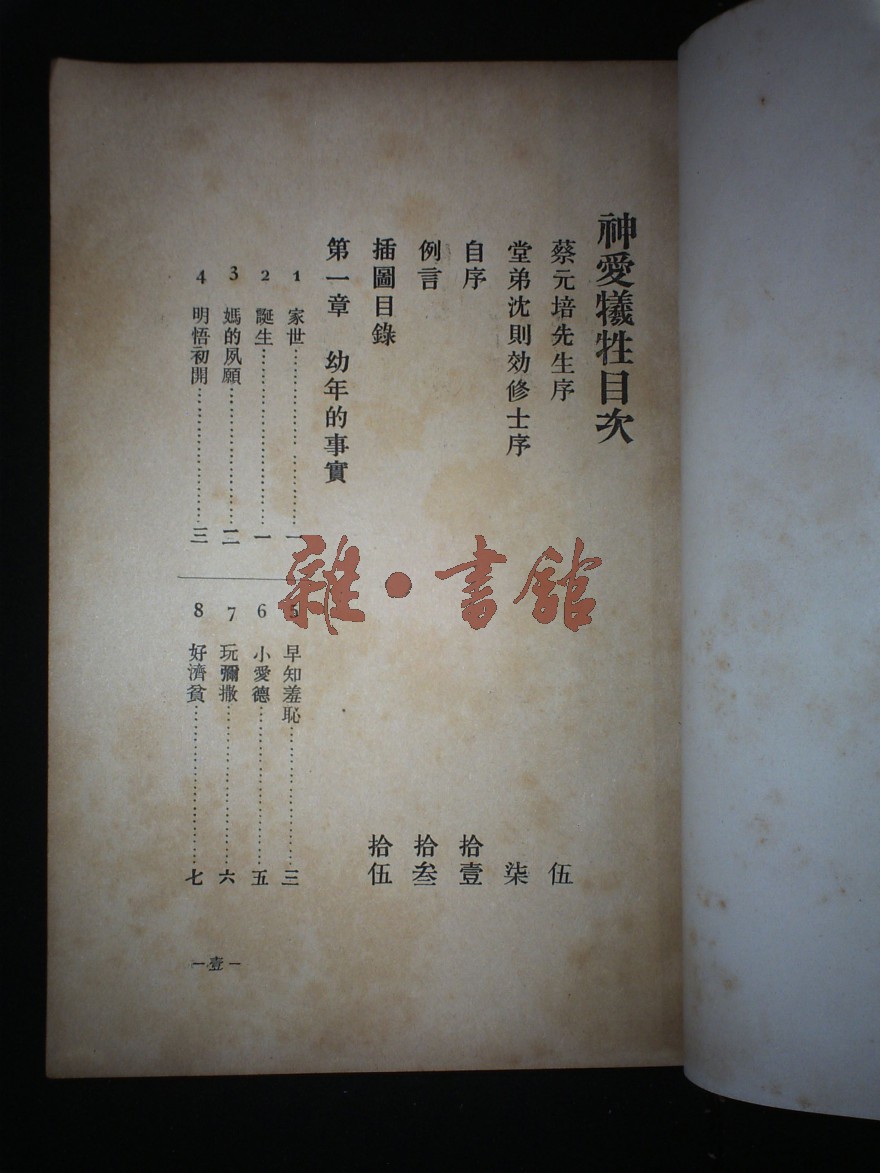 神愛犧牲目次
蔡元培先生序 伍
堂弟沈則効修士序 柒
自序 拾壹
例言 拾叁
插圖目錄 拾伍
第一章 幼年的事實
1 家世…………………一
2 誕生…………………一
3 媽的夙願…………………二
4 明悟初開…………………三
5 早知羞恥…………………三
6 小愛德…………………五
7 玩彌撒…………………六
8 好濟貧…………………七
—壹—
雜·書館